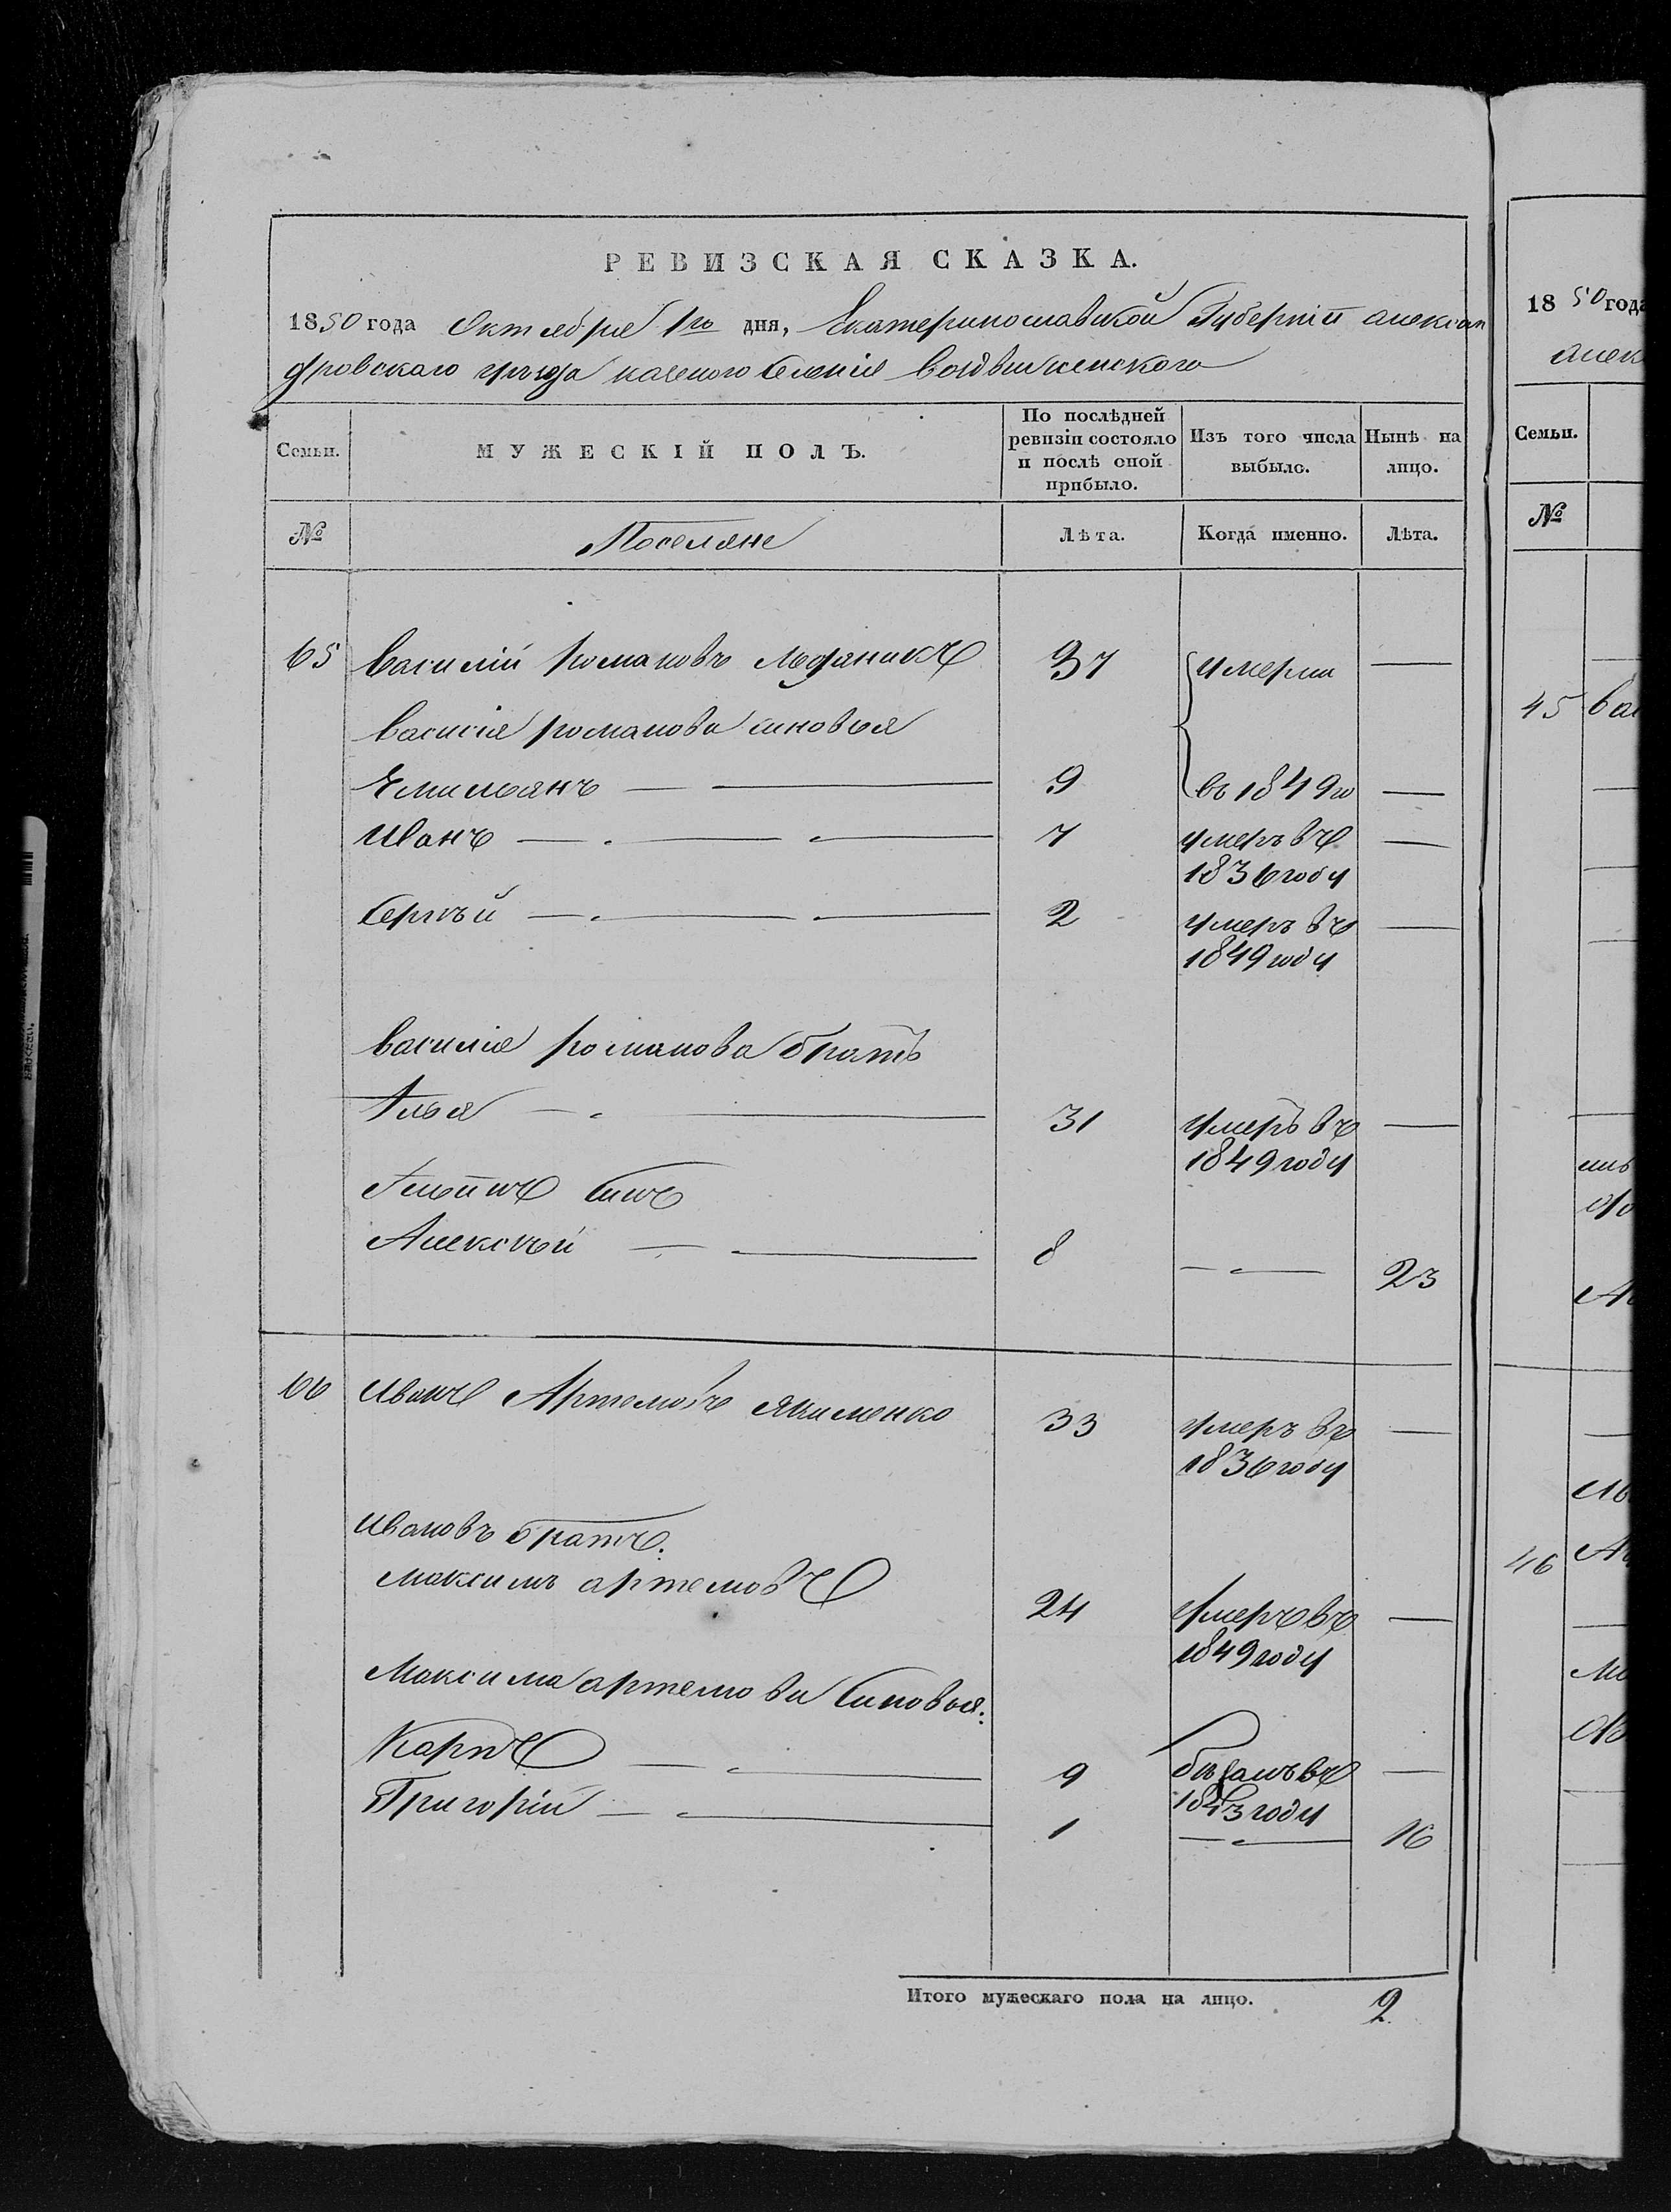 РЕВИЗСКАЯ СКАЗКА.
1850 года Октября 1го дня, Екатеринославской Губерніи алексан
дровскаго уезда казеного Селенія воздвиженского
Семьи. МУЖЕСКІЙ ПОЛЪ. По послѣдней ревизіи состояло и послѣ оной прибыло. Изъ того числа выбыло. Нынѣ на лицо.
№ Поселяне Лѣта. Когда именно. Лѣта.
65 Василій Романовъ 37 умерли —
Василія романова сыновья
Емильянъ — — 9 въ 1849го —
Иванъ — — — 7 умеръ въ —
1836 году
Сергѣй — — — 2 умеръ въ —
1849 году
Василія романова братъ
Илья — — 31 умеръ въ —
1849 году
Ильинъ сынъ
Алексѣй — — 8 — — 23
66 Иванъ Артемовъ Якименко 33 умеръ въ —
1836 году
Ивановъ братъ:
Максимъ артемовъ 24 умеръ въ —
1849 году
Максима артемова Сыновья:
Карпъ — — 9 бежалъ въ —
1843 году
Григорій — — 1 — — 16
Итого мужескаго пола на лицо. 2
18 50 года
алек
Семьи.
№
45 Ва
46